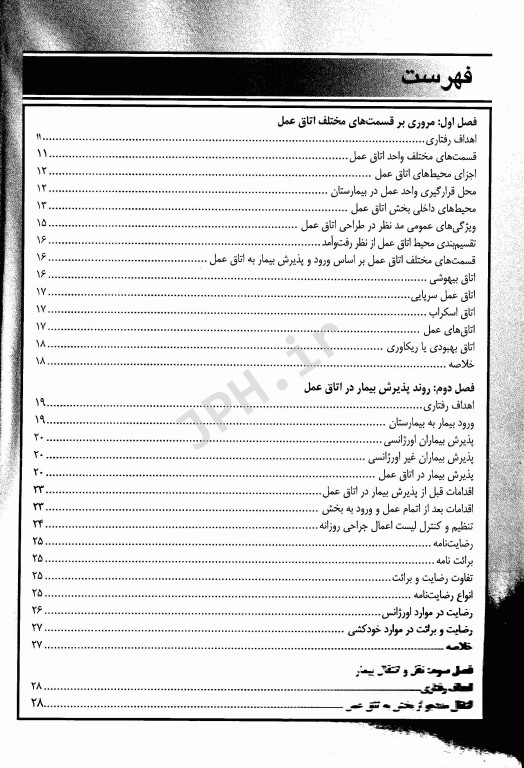 فهرست
فصل اول: مروری بر قسمت‌های مختلف اتاق عمل
اهداف رفتاری ۱۱
قسمت‌های مختلف واحد اتاق عمل ۱۱
اجزای محیط‌های اتاق عمل ۱۲
محل قرارگیری واحد عمل در بیمارستان ۱۲
محیط‌های داخلی بخش اتاق عمل ۱۳
ویژگی‌های عمومی مد نظر در طراحی اتاق عمل ۱۵
تقسیم‌بندی محیط اتاق عمل از نظر رفت‌وآمد ۱۶
قسمت‌های مختلف اتاق عمل بر اساس ورود و پذیرش بیمار به اتاق عمل ۱۶
اتاق بیهوشی ۱۶
اتاق عمل سرپایی ۱۷
اتاق اسکراب ۱۷
اتاق‌های عمل ۱۷
اتاق بهبودی یا ریکاوری ۱۸
خلاصه ۱۸
فصل دوم: روند پذیرش بیمار در اتاق عمل
اهداف رفتاری ۱۹
ورود بیمار به بیمارستان ۱۹
پذیرش بیماران اورژانسی ۲۰
پذیرش بیماران غیر اورژانسی ۲۰
پذیرش بیمار در اتاق عمل ۲۰
اقدامات قبل از پذیرش بیمار در اتاق عمل ۲۳
اقدامات بعد از اتمام عمل و ورود به بخش ۲۳
تنظیم و کنترل لیست اعمال جراحی روزانه ۲۴
رضایت‌نامه ۲۵
برائت نامه ۲۵
تفاوت رضایت و برائت ۲۵
انواع رضایت‌نامه ۲۵
رضایت در موارد اورژانس ۲۶
رضایت و برائت در موارد خودکشی ۲۷
خلاصه ۲۷
فصل سوم: نقل و انتقال بیمار
اهداف رفتاری ۲۸
انتقال مددجو از بخش به اتاق عمل ۲۸
JPH.ir